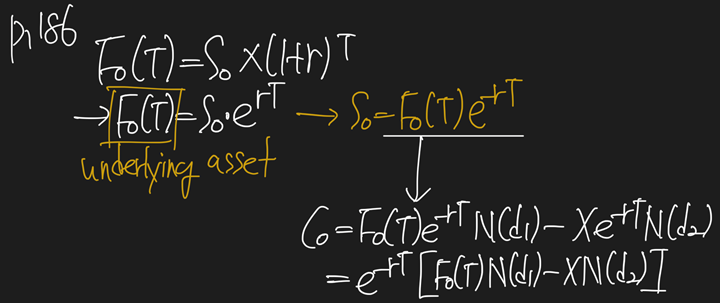 p.186
F₀(T)=S₀×(1+r)ᵀ
→F₀(T)=S₀·e^rT → S₀=F₀(T)e^-rT
underlying asset
C₀=F₀(T)e^-rT N(d₁)-Xe^-rT N(d₂)
=e^-rT[F₀(T)N(d₁)-XN(d₂)]